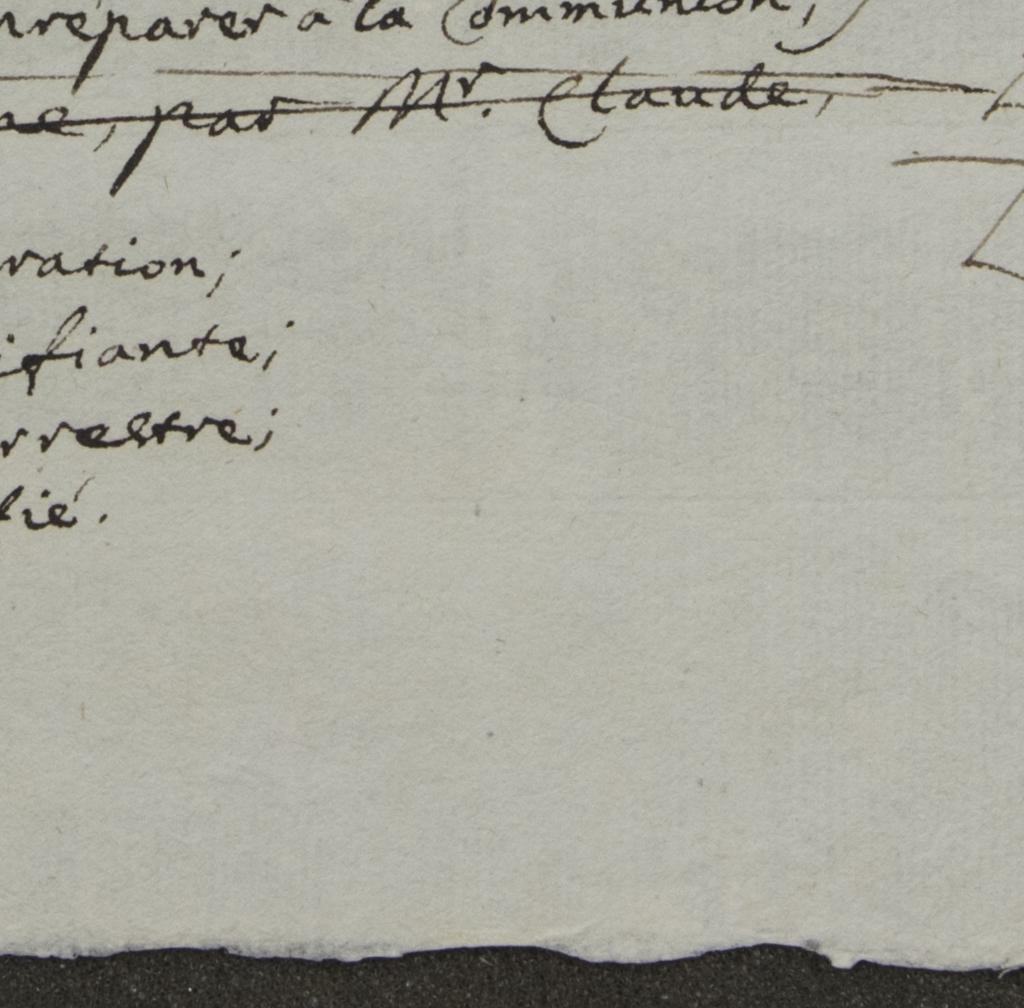 préparer à la Communion,
ne, par Mr. Claude,
ration;
ifiante;
rrestre;
lié.